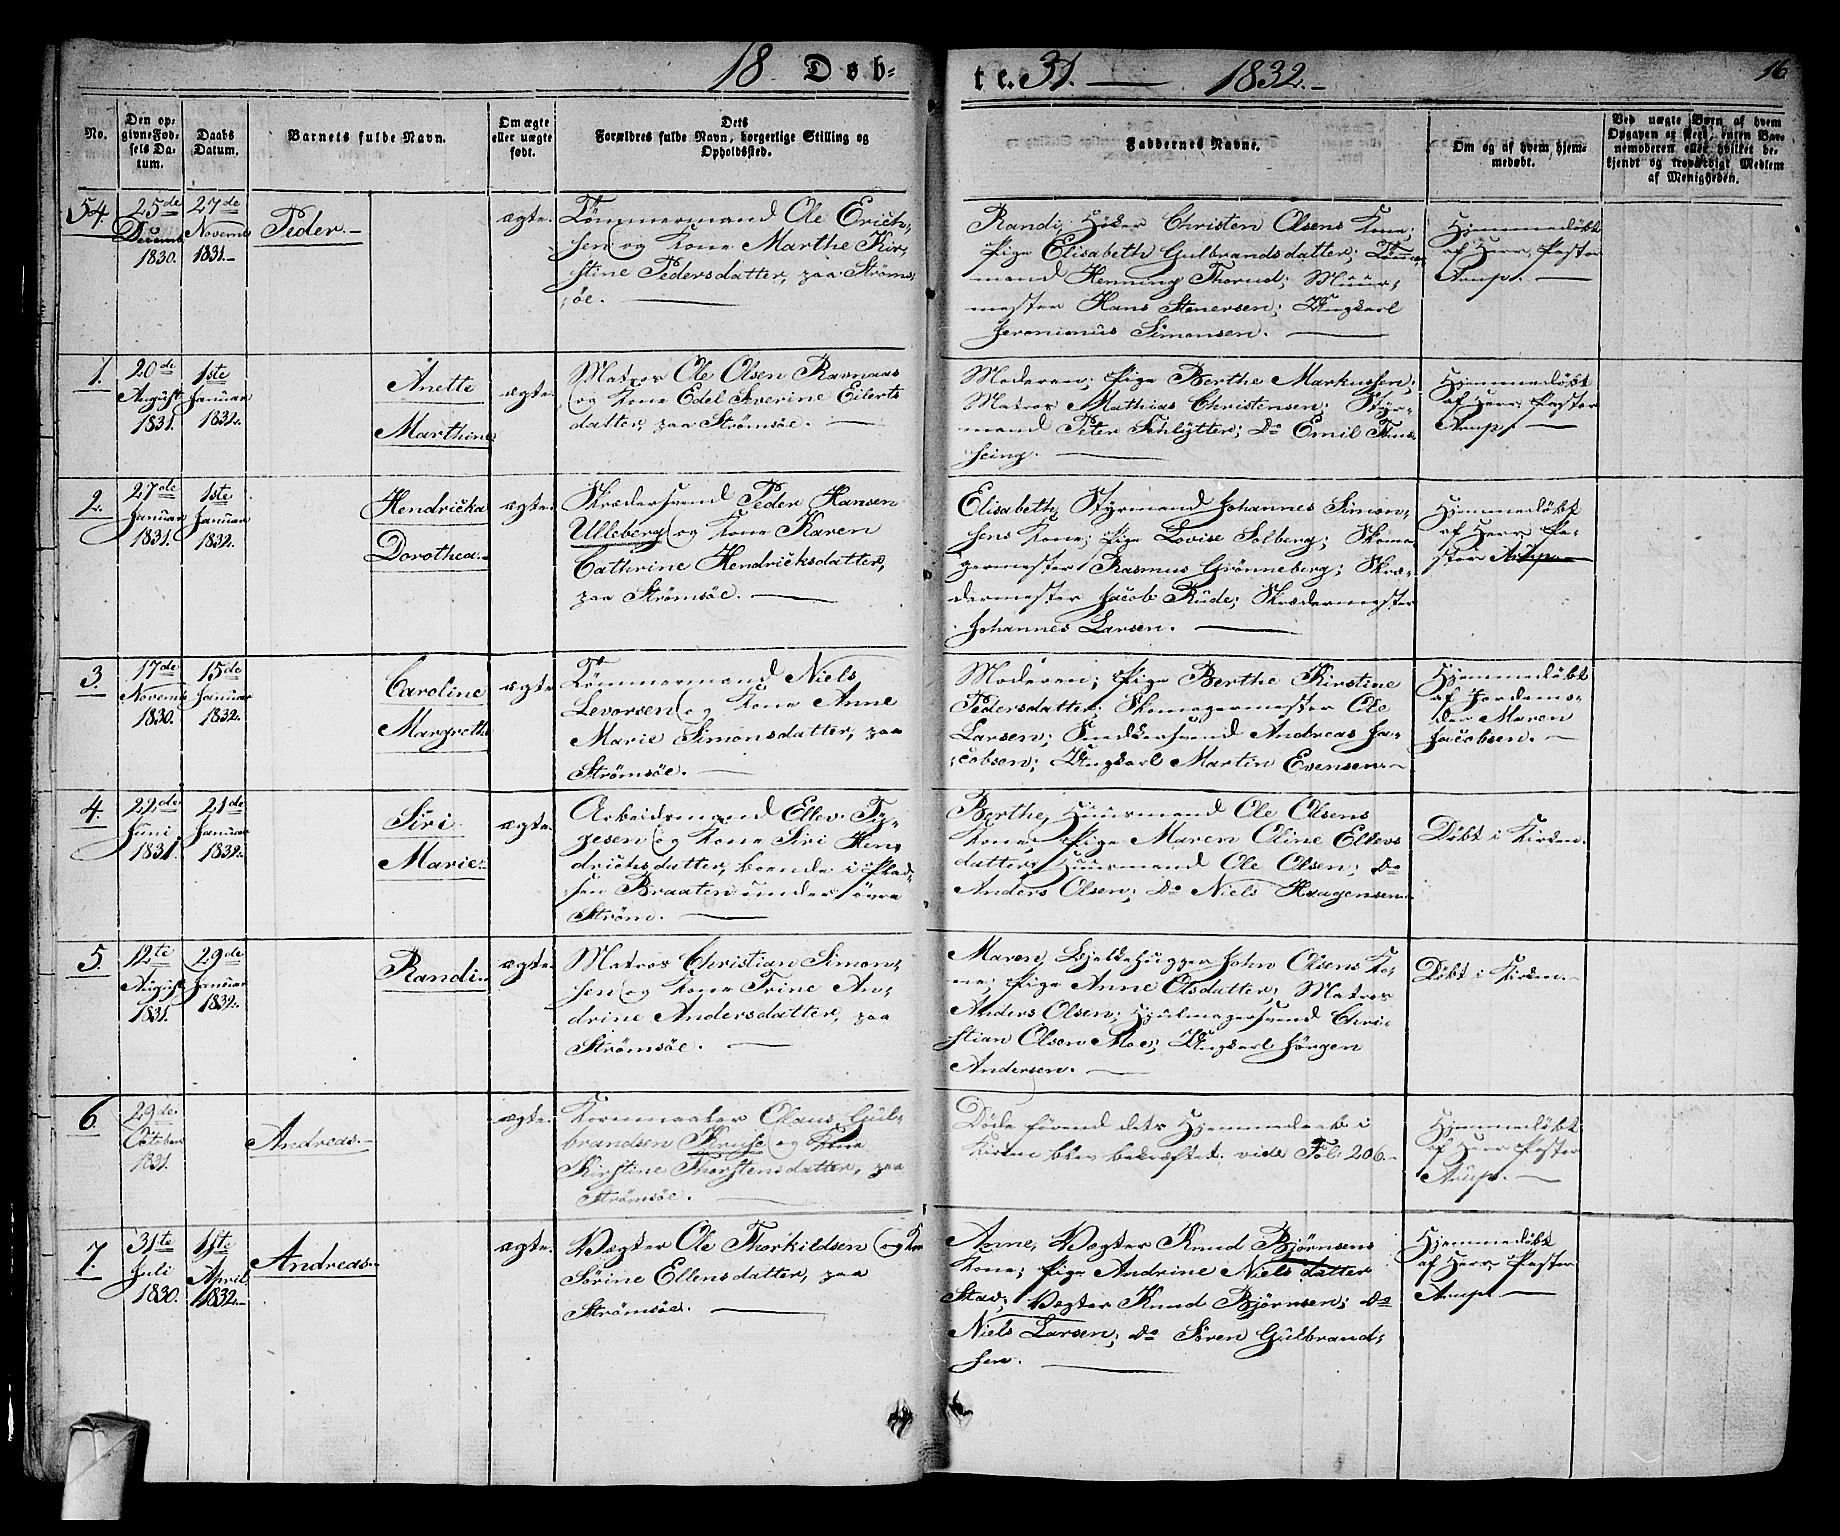 18 Døb-
te. 31. — 1832.-
16
No.
Den op-
givne Fød-
sels Da-
tum.
Daabs
Datum.
Barnets fulde Navn.
Om ægte
eller uægte
født.
Dets
Forældres fulde Navn, borgerlige Stilling og
Opholdssted.
Faddernes Navne.
Om og af hvem hjem-
medøbt.
Ved uægte Børn af hvem
Opgaven er skeed, enten Bar-
nemoderen eller hvilket be-
kjendt og troværdigt Medlem
af Menigheden.
54
25de
Decemb
1830.
27de
Novemb
1831.-
Peder.-
ægte.
Tømmermand Ole Erich-
sen og Kone Marthe Kir-
stine Pedersdatter, paa Strøms-
øe.
Randi, Høker Christen Olsens Kone;
Pige Elisabeth Gulbrandsdatter; Tømmer-
mand Henning Thorud; Muur-
mester Hans Stenersen; Ungkarl
Jeronimus Simonsen.
Hjemmedøbt
af Herr Pastor
Arup.
1.
20de
August
1831.
1ste
Januar
1832.
Anette
Marthine
ægte.
Matros Ole Olsen Ravnaas
og Kone Edel Severine Eilerts-
datter, paa Strømsøe.
Moderen; Pige Berthe Markussen;
Matros Mathias Christensen; Styr-
mand Peter Schlytter; Do Emil
Hjemmedøbt
af Herr Pastor
Arup.
2.
27de
Januar
1831.
1ste
Januar
1832.
Hendricka
Dorothea.-
ægte.
Skrædersvend Peder Hansen
Ulleberg og Kone Karen
Cathrine Hendricksdatter,
paa Strømsøe.
Elisabeth, Styrmand Johannes Simon-
sens Kone; Pige Lovise Solberg; Skoma-
germester Rasmus Grønneberg; Skræ-
dermester Jacob Rude; Skrædermester
Johannes Larsen.
Hjemmedøbt
af Herr Pa-
stor Arup.
3.
17de
Novemb
1830.
15de
Januar
1832.
Caroline
Margrethe
ægte
Tømmermand Niels
Levorsen og Kone Anne
Marie Simonsdatter, paa
Strømsøe.
Moderen; Pige Berthe Kirstine
Pedersdatter; Skomagermester Ole
Larsen; Snedkersvend Andreas Ja-
cobsen; Ungkarl Martin Evensen.
Hjemmedøbt
af Jordemo-
der Maren
Jacobsen.
4.
22de
Juni
1831.
21de
Januar
1832.
Siri
Marie.-
ægte.
Arbeidsmand Ellev Ty-
gesen og Kone Siri Hen-
drichsdatter, boende i Plad-
sen Braaten under øvre
Strøm.
Berthe, Huusmand Ole Olsens
Kone; Pige Maren Oline Ellevs-
datter; Huusmand Ole Olsen; Do
Anders Olsen; Do Niels Haagensen
Døbt i Kirken.
5.
12te
August
1831.
29de
Januar
1832.
Randi.-
ægte.
Matros Christian Simon-
sen og Kone Trine An-
drine Andersdatter, paa
Strømsøe.
Maren, Bjelkehugger John Olsens Ko-
ne; Pige Anne Olsdatter; Matros
Anders Olsen; Hjulmagersvend Chri-
stian Olsen Moe; Ungkarl Jørgen
Andersen.
Døbt i Kirken.
6.
29de
October
1831.
Andreas.-
ægte.
Kornmaaler Olaus Gul-
brandsen Kruse og Kone
Kirstine Thorstensdatter, paa
Strømsøe.
Døde førend dets Hjemmedaab i
Kirken blev bekræftet. vide Fol: 206.-
Hjemmedøbt
af Herr Pastor
Arup.
7.
31te
Juli
1830.
1ste
April
1832.
Andreas.-
ægte.
Vægter Ole Thorkildsen og Kone
Sirine Ellensdatter, paa
Strømsøe.
Anne, Vægter Knud Bjørnsens
Kone; Pige Andrine Nielsdatter
Stav; Vægter Knud Bjørnsen; Do
Niels Larsen; Do Søren Gulbrand-
sen.
Hjemmedøbt
af Herr Pastor
Arup.